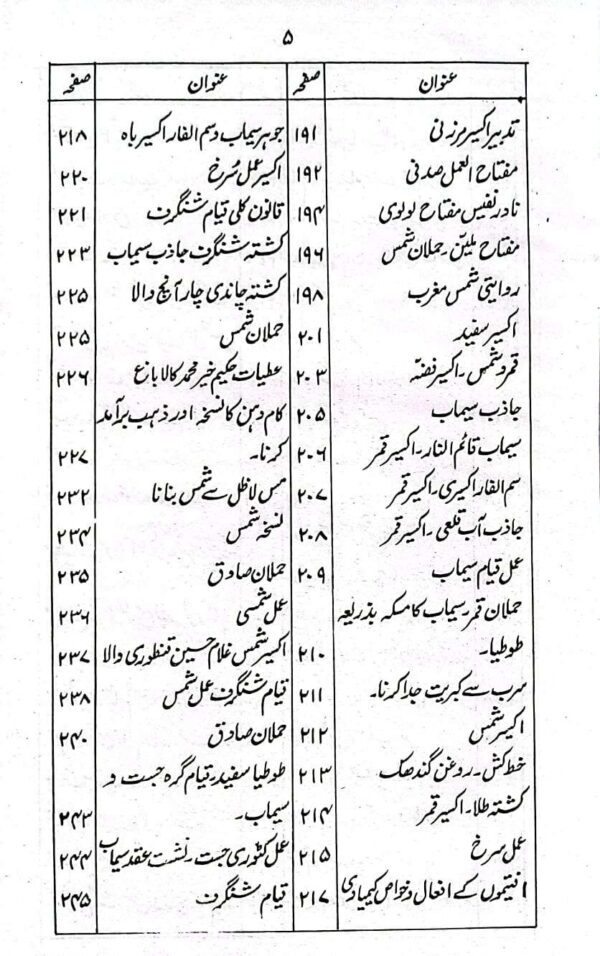 ۵
عنوان صفحہ عنوان صفحہ
تدبیر اکسیر مرزنی ۱۹۱
مفتاح العمل صدفی ۱۹۲
نادر نفیس مفتاح لولوی ۱۹۴
مفتاح ملین۔ حملان شمس ۱۹۶
روایتی شمس مغرب ۱۹۸
اکسیر سفید ۲۰۱
قمر و شمس۔ اکسیر فضہ ۲۰۳
جاذب سیماب ۲۰۵
سیماب قائم النار۔ اکسیر قمر ۲۰۶
سم الفار اکسیری۔ اکسیر قمر ۲۰۷
جاذب آب قلعی۔ اکسیر قمر ۲۰۸
عمل قیام سیماب ۲۰۹
حملان قمر۔ سیماب کا مسکہ بذریعہ
طوطیا۔ ۲۱۰
سرب سے کبریت جدا کرنا۔ ۲۱۱
اکسیر شمس ۲۱۲
خط کش۔ روغن گندھک ۲۱۳
کشتہ طلا۔ اکسیر قمر ۲۱۴
عمل سرخ ۲۱۵
انتیموں کے افعال و خواص کیمیاوی ۲۱۷
جوہر سیماب و سم الفار اکسیر باہ ۲۱۸
اکسیر عمل سُرخ ۲۲۰
قانون کلی قیام شنگرف ۲۲۱
کشتہ شنگرف جاذب سیماب ۲۲۳
کشتہ چاندی چار آنچ والا ۲۲۵
حملان شمس ۲۲۵
عطیات حکیم خیر محمد کالا باغ ۲۲۶
کام دہن کا نسخہ اور ذہب برآمد
کرنا۔ ۲۲۷
مس لاظل سے شمس بنانا ۲۳۲
نسخہ شمس ۲۳۴
حملان صادق ۲۳۵
عمل شمسی ۲۳۶
اکسیر شمس غلام حسین تنطوری والا ۲۳۷
قیام شنگرف عمل شمس ۲۳۸
حملان صادق ۲۴۰
طوطیا سفید۔ قیام گرہ جست و
سیماب۔ ۲۴۳
عمل کٹوری جست۔ نشست عقد سیماب ۲۴۴
قیام شنگرف ۲۴۵